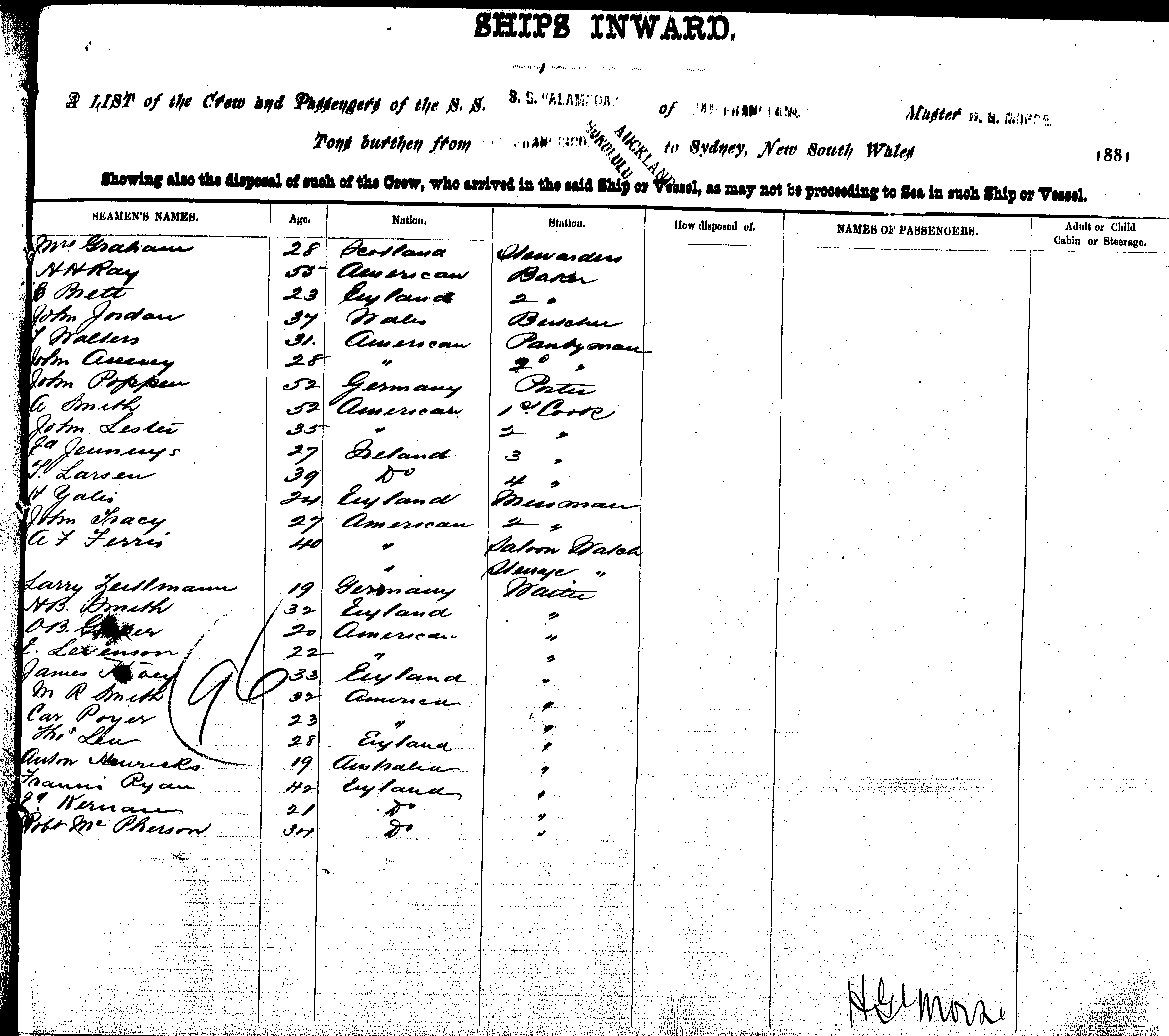 SHIPS INWARD.
A LIST of the Crew and Passengers of the S. S. S. S. "ALAMEDA" of SAN FRANCISCO Master H. G. MORSE
Tons burthen from SAN FRANCISCO HONOLULU AUCKLAND to Sydney, New South Wales 1881
Showing also the disposal of such of the Crew, who arrived in the said Ship or Vessel, as may not be proceeding to Sea in such Ship or Vessel.
SEAMEN'S NAMES. Age. Nation. Station. How disposed of. NAMES OF PASSENGERS. Adult or Child Cabin or Steerage.
Mrs Graham 28 Scotland Stewardess
H H Ray 55 American Baker
Brett 23 England 2 "
John Jordan 37 Wales Butcher
Walters 31 American Pantryman
John 28 " 2d "
John Poppen 52 Germany Porter
A Smith 52 American 1st Cook
John Lester 35 " 2 "
Jennings 27 Ireland 3 "
Larsen 39 Do 4 "
H Yates 24 England Messman
John Tracy 27 American 2 "
A F Ferris 40 " Saloon Watch
" Steerage "
Larry 19 Germany Waiter
H B Smith 32 England "
O B 20 American "
Levenson 22 " "
James 33 England "
M R Smith 32 America "
Car Poyer 23 " "
Thos 28 England "
Anton Henricks 19 Australia "
Francis Ryan 42 England "
Kernan 21 Do "
Robt McPherson 34 Do "
96
H G Morse